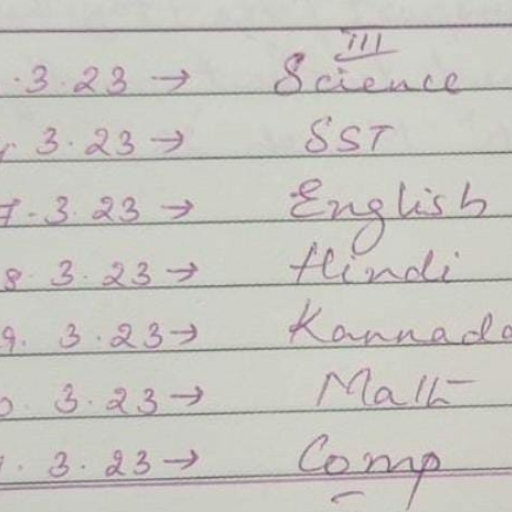 III
.3.23 → Science
3.23 → SST
7.3.23 → English
8.3.23 → Hindi
9.3.23 → Kannada
0.3.23 → Math
.3.23 → Comp